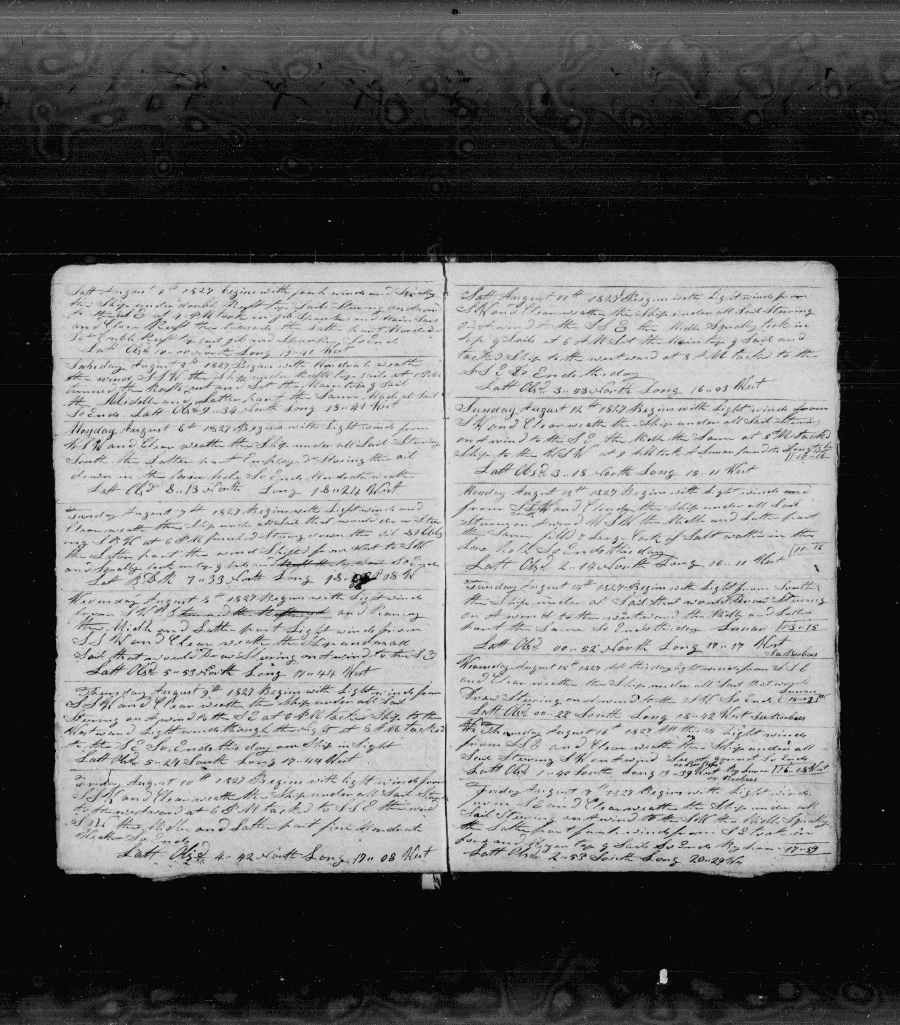 Satt August 4th 1827 Begins with fresh winds and Squally
the Ship under double Reeft top Sails Steering on a wind
to the S E at 4 P M took in gib Spanker and Main Sail
and Close Reeft the topsails the Latter part Moderate
Let out Reefts and gib and Spanker So End
Latt Obsd 10"00 North Long 18"41 West
Sunday August 5th 1827 Begins with Moderate weath
the wind S S W the Ship under double
turned the Reefs out and Set the Maintop g Sail
the Middle and Latter part the Same Made all Sail
So Ends Latt Obs 9"34 North Long 18"41 West
Monday August 6th 1827 Begins with Light winds from
W S W and Clear weath the Ship under all Sail Steering
South the Latter part Employd Stowing the oil
down in the fore hole So Ends Moderate weath
Latt Obsd 8"13 North Long 18"24 West
Tuesday August 7th 1827 Begins with Light winds and
Clear weath the Ship under all Sail that would draw Steer
ing S B W at 6 P M finished Stowing down the oil 31 Cbls
the Latter part the wind Shifted from West to S W
and Squally took in top g Sails and So Ends
Lat B D R 7"33 North Long 18" 08 W
Wednesday August 8th 1827 Begins with Light winds
from S W B S and Rainey
the Middle and Latter part Light winds from
S S W and Clear weath the Ship under all
Sail that would Draw Steering on a wind to the S E
Latt Obsd 5"59 North Long 17"44 West
Thursday August 9th 1827 Begins with Light winds from
S S W and Clear weath the Ship under all Sail
Steering on a wind to the S E at 6 P M tacked Ship to the
Westward Light winds through the Night at 5 A M tacked
to the S E So Ends this day one Ship in Sight
Latt Obsd 5"24 North Long 17"44 West
Friday August 10th 1827 Begins with Light winds from
S S W and Clear weath the Ship under all Sail Steering
to the westward at 6 P M tacked to S S E the wind
S W the Middle and Latter part fine Moderate
Weather So Ends
Latt Obsd 4"42 North Long 17"08 West
Satt August 11th 1827 Begins with Light winds from
S W and Clear weath the Ship under all Sail Steering
on a wind to the S S E the Middle Squaly took in
top g Sails at 6 A M Set the Maintop g Sail and
tacked Ship to the westward at 8 A M tacked to the
S S E So Ends this day
Latt Obsd 3"53 North Long 16"03 West
Sunday August 12th 1827 Begins with Light winds from
S W and Clear weath the Ship under all Sail Steering
on a wind to the S E the Middle the Same at 5 P M tacked
Ship to the W S W at 9 A M took A Lunar found the Long to be
Latt Obsd 3"18 North Long 15"11 West
Monday August 13th 1827 Begins with Light winds and
from S S W and Cloudy the Ship under all Sail
Steering on A wind W S W the Middle and Latter part
the Same filld 7 Large Cask of Salt water in the
fore hole So Ends this day 17"16
Latt Obsd 2"14 North Long 16"11 West
Tuesday August 14th 1827 Begins with Light from South
the Ship under all Sail that would Draw Steering
on A wind to the westward the Middle and Latter
part the Same So Ends this day Lunar 18"15
Latt Obsd 00"52 North Long 17"17 West
Wensday August 15th 1827 All this day light winds from S S E
and Clear weath the Ship under all Sail that would
Draw Steering on a wind to the S W So Ends
Latt Obs 00"22 South Long 18"42 West
Thursday August 16th 1827 All this 24 Light winds
from S S E and Clear weath the Ship under all
Sail Steering S W on A wind So Ends
Latt Obsd 1"40 South Long 19"39 West By Lunar 16"08 West
Friday August 17th 1827 Begins with Light winds
from S E and Clear weath the Ship under all
Sail Steering on A wind to the S W the Middle Squaly
the Latter part fresh winds from S E took in
fore and Mizen top g Sails So Ends By Lunar 17"59
Latt Obsd 2"53 South Long 20"29 W